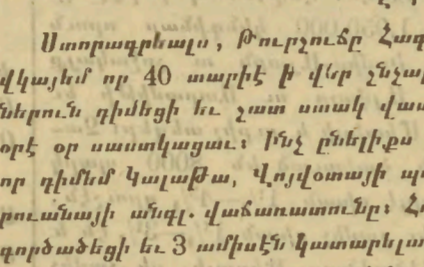 Ստորագրեալս, Թուրչուճը Հազ
վկայեմ որ 40 տարիէ ի վեր շնչա
ներուն դիմեցի եւ շատ ստակ վատ
օրէ օր սաստկացաւ։ Ինչ ընելիքս
որ դիմեմ Կալաթա, Վոյվօտայի պո
րուանայի անգլ. վաճառատունը։ Հ
գործածեցի եւ 3 ամիսէն կատարելա